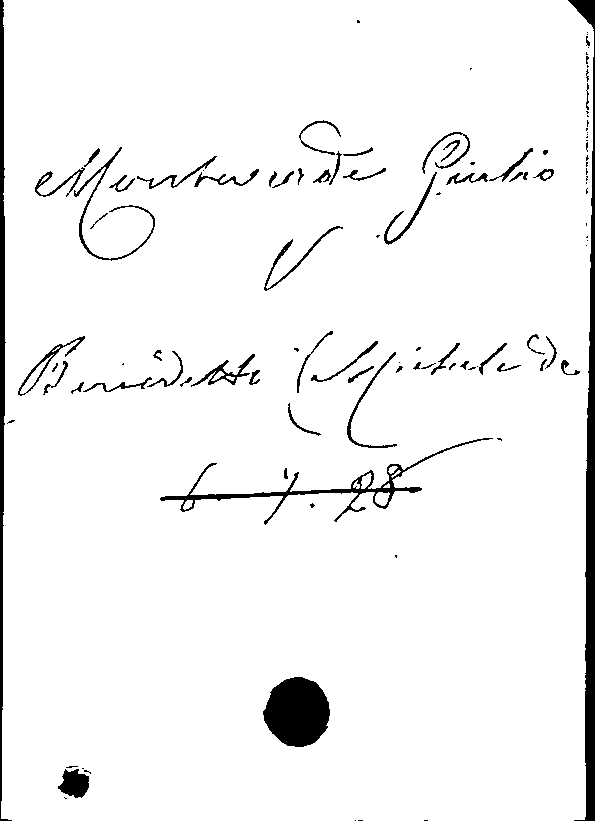 Monteverde Giulio
V
Benedetti Michele de
6. 7. 28